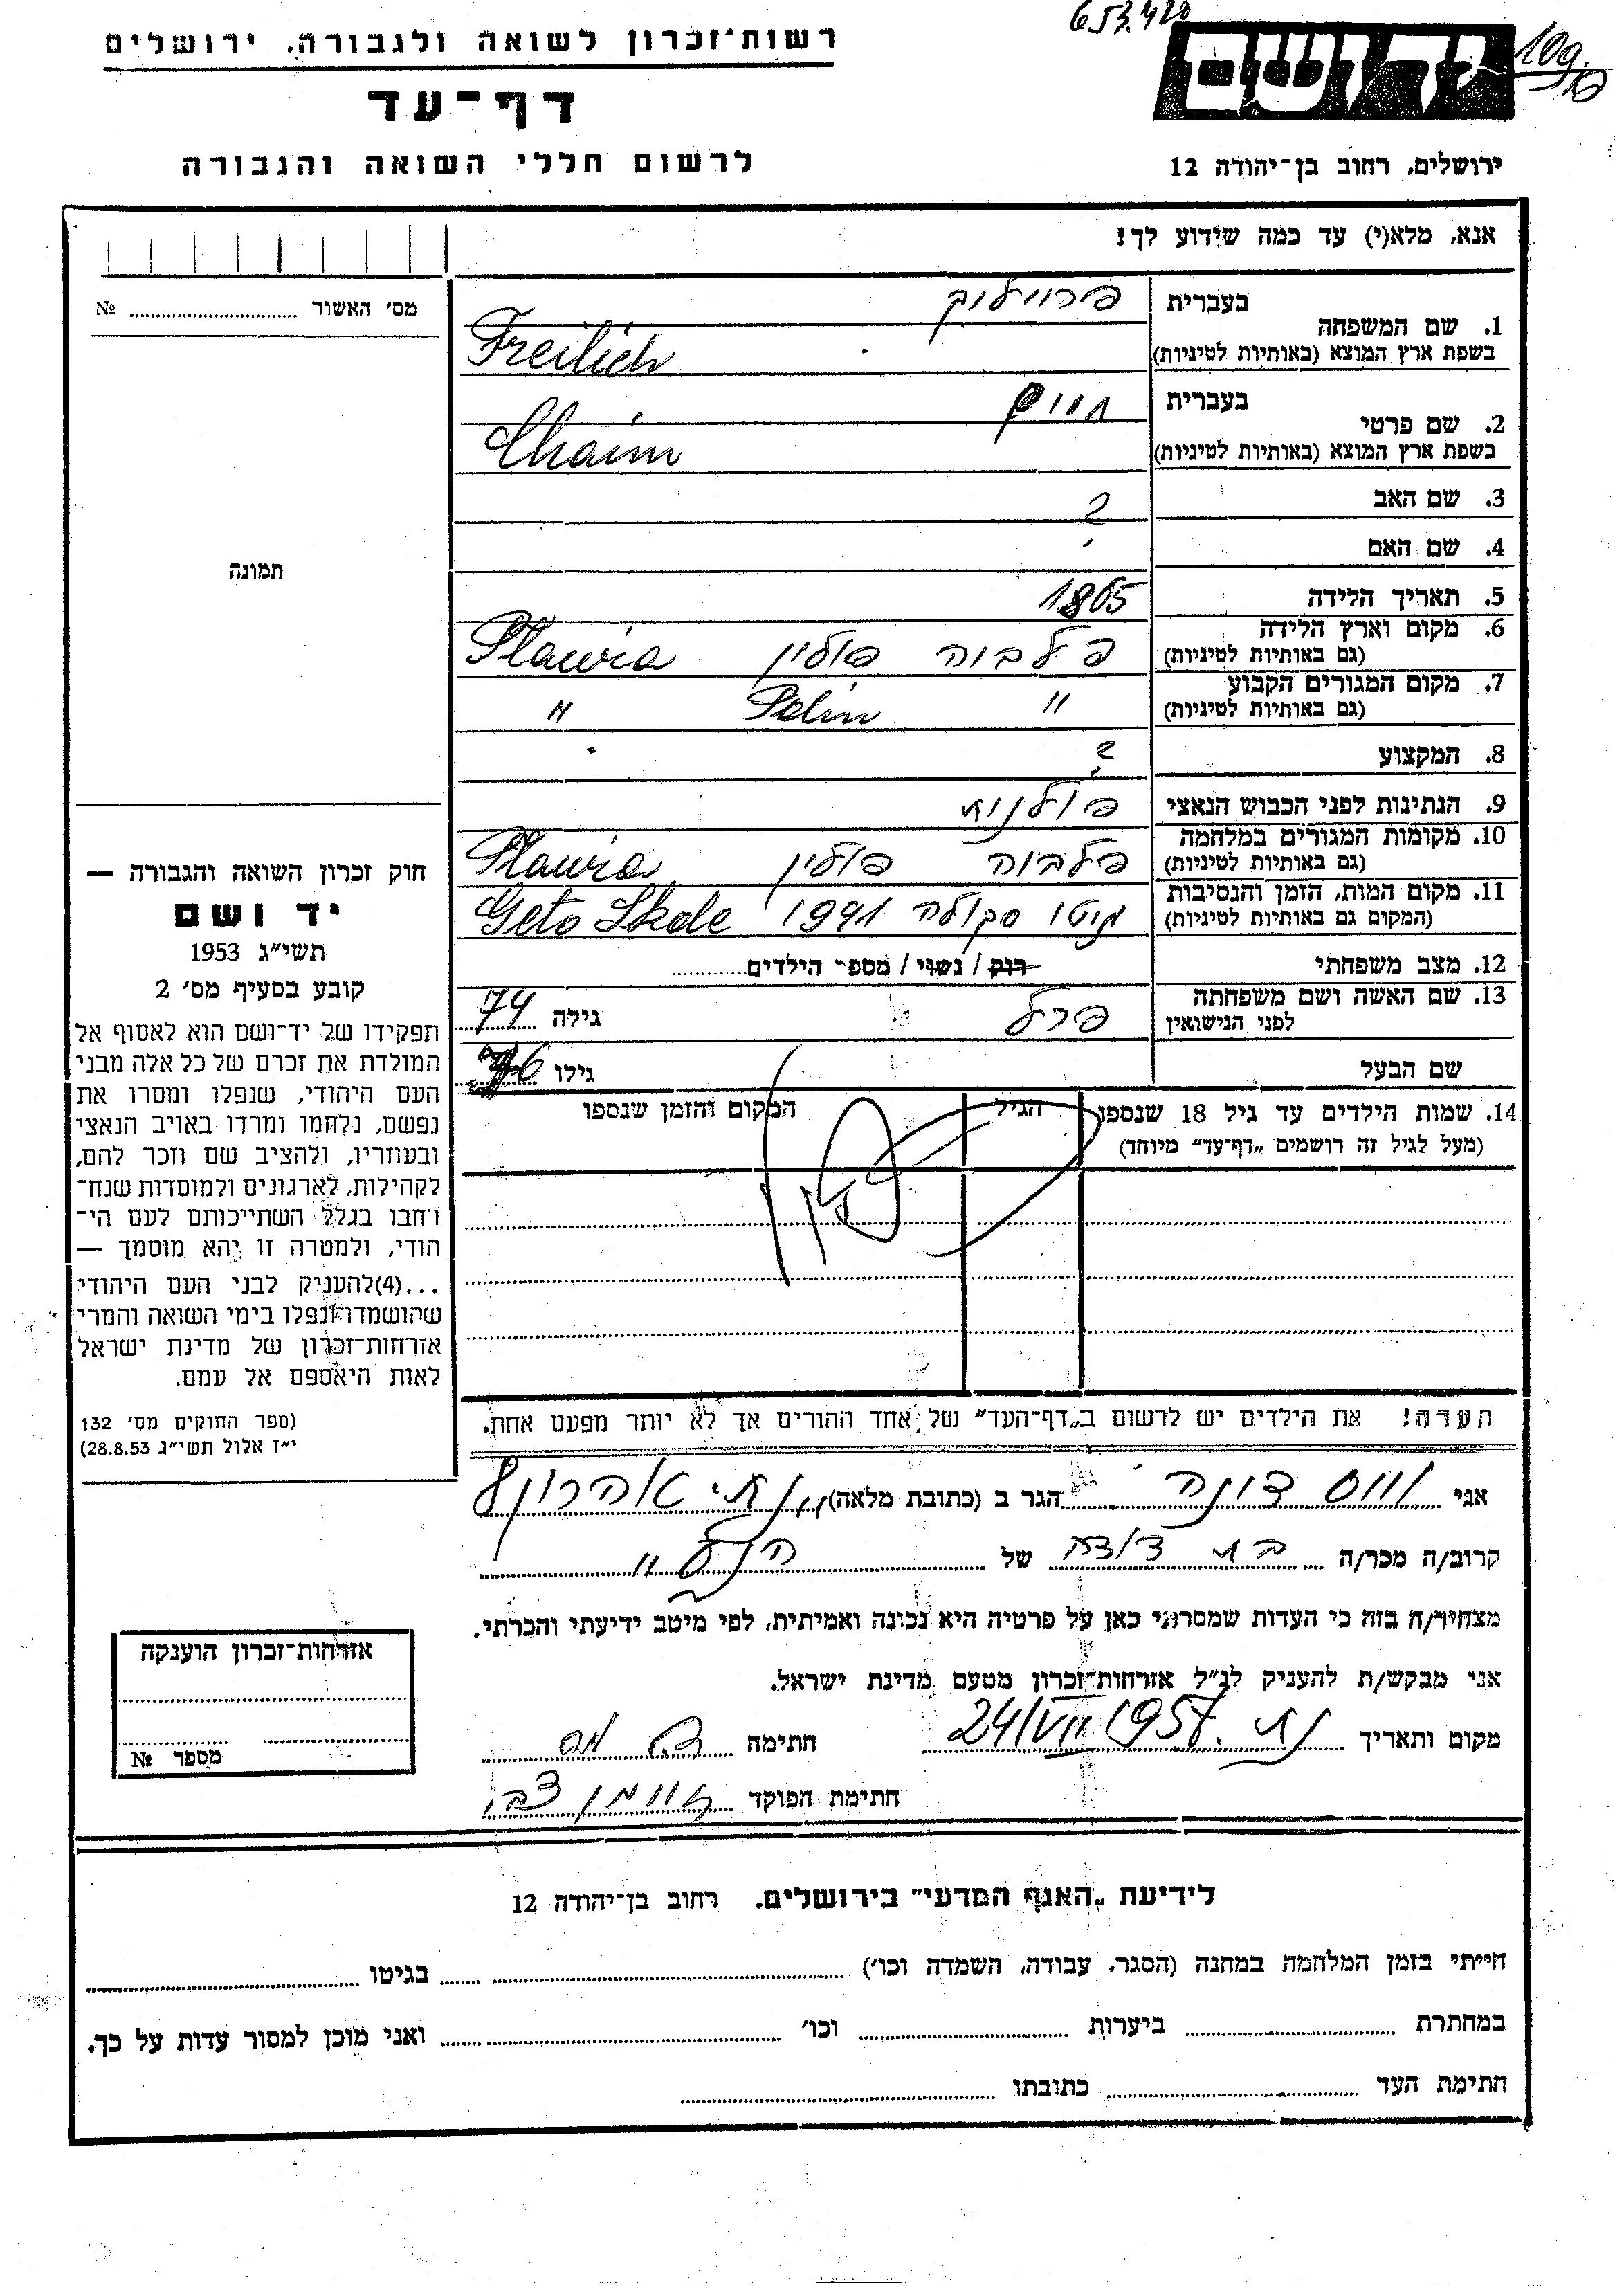 653.420
רשות־זכרון לשואה ולגבורה, ירושלים
ידושם
109.
דף־עד
לרשום חללי השואה והגבורה
ירושלים, רחוב בן־יהודה 12
אנא, מלא(י) עד כמה שידוע לך!
מס׳ האשור № 
בעברית
1. שם המשפחה
בשפת ארץ המוצא (באותיות לטיניות)
Freilich
בעברית חיים
2. שם פרטי
בשפת ארץ המוצא (באותיות לטיניות)
Chaim
3. שם האב ?
4. שם האם
5. תאריך הלידה 1865
6. מקום וארץ הלידה
(גם באותיות לטיניות)
פלבוה פולין Plawia
7. מקום המגורים הקבוע
(גם באותיות לטיניות)
" Polin "
8. המקצוע ?
9. הנתינות לפני הכבוש הנאצי פולנית
10. מקומות המגורים במלחמה
(גם באותיות לטיניות)
פלבוה פולין Plawia
11. מקום המות, הזמן והנסיבות
(המקום גם באותיות לטיניות)
גיטו סקולה 1941 Geto Skole
12. מצב משפחתי רוק / נשוי / מספר הילדים
13. שם האשה ושם משפחתה
לפני הנישואין
פרל גילה 74
שם הבעל גילו 76
14. שמות הילדים עד גיל 18 שנספו
(מעל לגיל זה רושמים „דף־עד״ מיוחד)
הגיל
המקום והזמן שנספו
הערה! את הילדים יש לרשום ב„דף־העד״ של אחד ההורים אך לא יותר מפעם אחת.
תמונה
חוק זכרון השואה והגבורה —
יד ושם
תשי״ג 1953
קובע בסעיף מס׳ 2
תפקידו של יד־ושם הוא לאסוף אל
המולדת את זכרם של כל אלה מבני
העם היהודי, שנפלו ומסרו את
נפשם, נלחמו ומרדו באויב הנאצי
ובעוזריו, ולהציב שם וזכר להם,
לקהילות, לארגונים ולמוסדות שנח־
רבו בגלל השתייכותם לעם הי־
הודי, ולמטרה זו יהא מוסמך —
...(4)להעניק לבני העם היהודי
שהושמדו ונפלו בימי השואה והמרי
אזרחות־זכרון של מדינת ישראל
לאות היאספם אל עמם.
(ספר החוקים מס׳ 132
י״ז אלול תשי״ג 28.8.53)
אני ווס דונה הגר ב (כתובת מלאה)
קרוב/ה מכר/ה בת דודה של הנ״ל
מצהיר/ה בזה כי העדות שמסרתי כאן על פרטיה היא נכונה ואמיתית, לפי מיטב ידיעתי והכרתי.
אני מבקש/ת להעניק לנ״ל אזרחות־זכרון מטעם מדינת ישראל.
מקום ותאריך 24/VII 1957 חתימה
חתימת הפוקד
אזרחות־זכרון הוענקה
מספר №
לידיעת „האגף המדעי״ בירושלים. רחוב בן־יהודה 12
חייתי בזמן המלחמה במחנה (הסגר, עבודה, השמדה וכו׳) בגיטו
במחתרת ביערות וכו׳ ואני מוכן למסור עדות על כך.
חתימת העד כתובתו